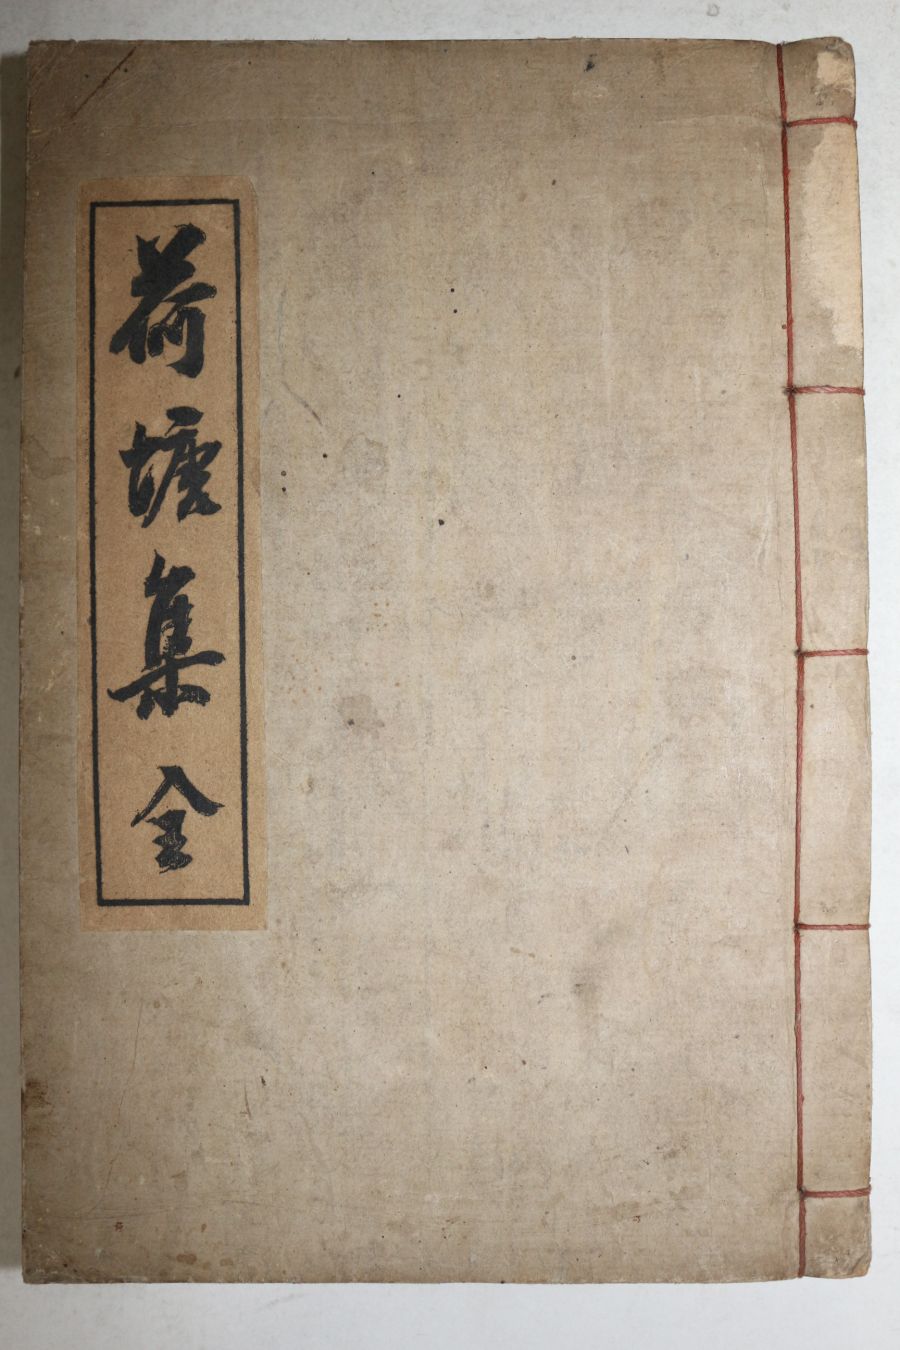 荷塘集 全